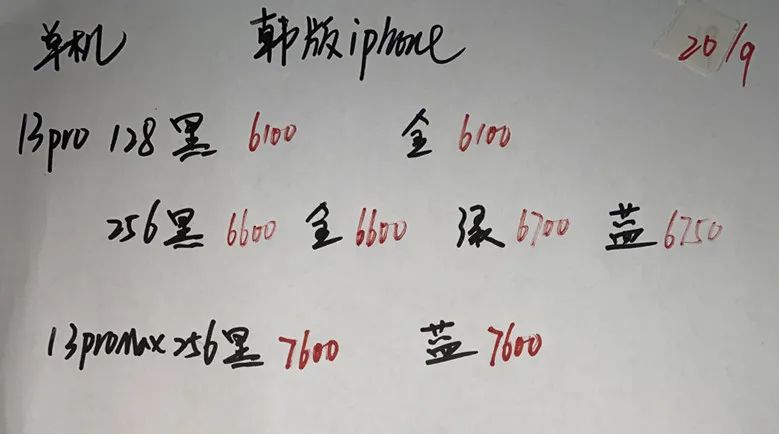 单机 韩版iphone 20/9
13pro 128黑 6100 金 6100
256黑 6600 金 6600 绿 6700 蓝 6750
13promax 256黑 7600 蓝 7600